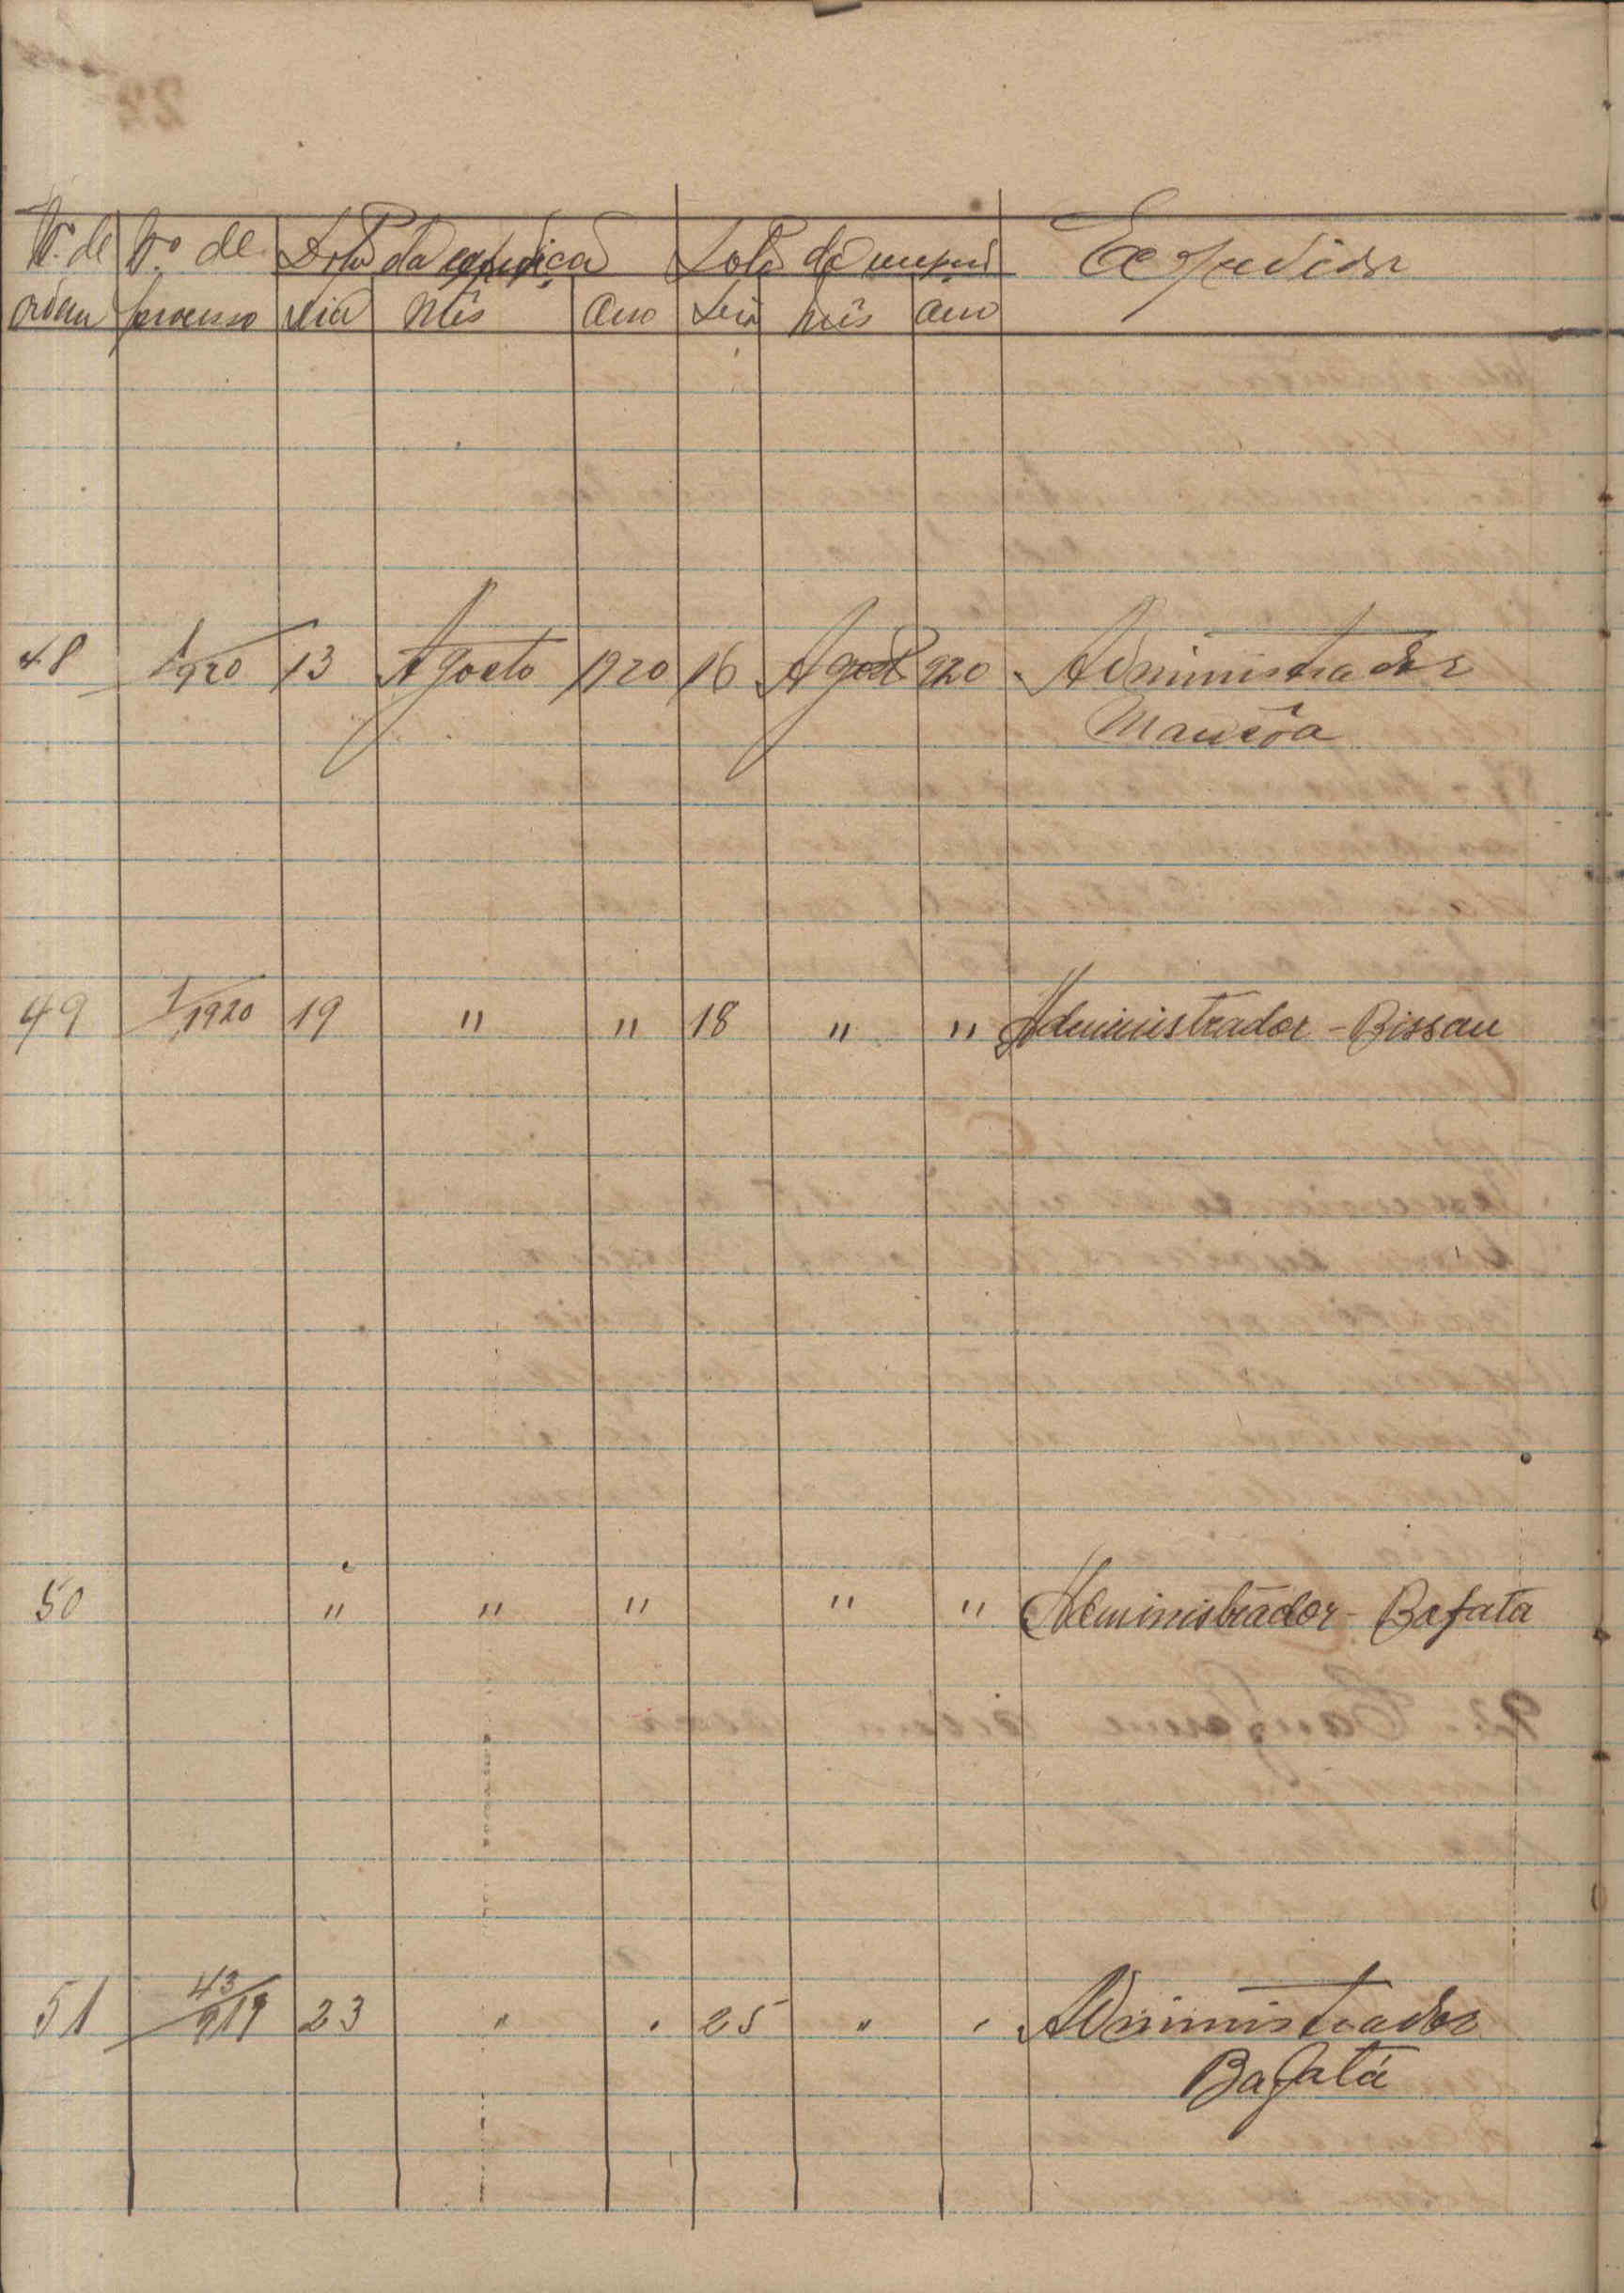 Nº de Nº de Data da expedição Data da mesma Expedidor
ordem processo dia Mês Ano Dia Mês Ano
48 1/920 13 Agosto 1920 16 Agost 920 Administrador
Mansôa
49 1/1920 19 " " 18 " " Administrador - Bissau
50 " " " " " Administrador - Bafata
51 43/919 23 " " 25 " " Administrador
Bafatá